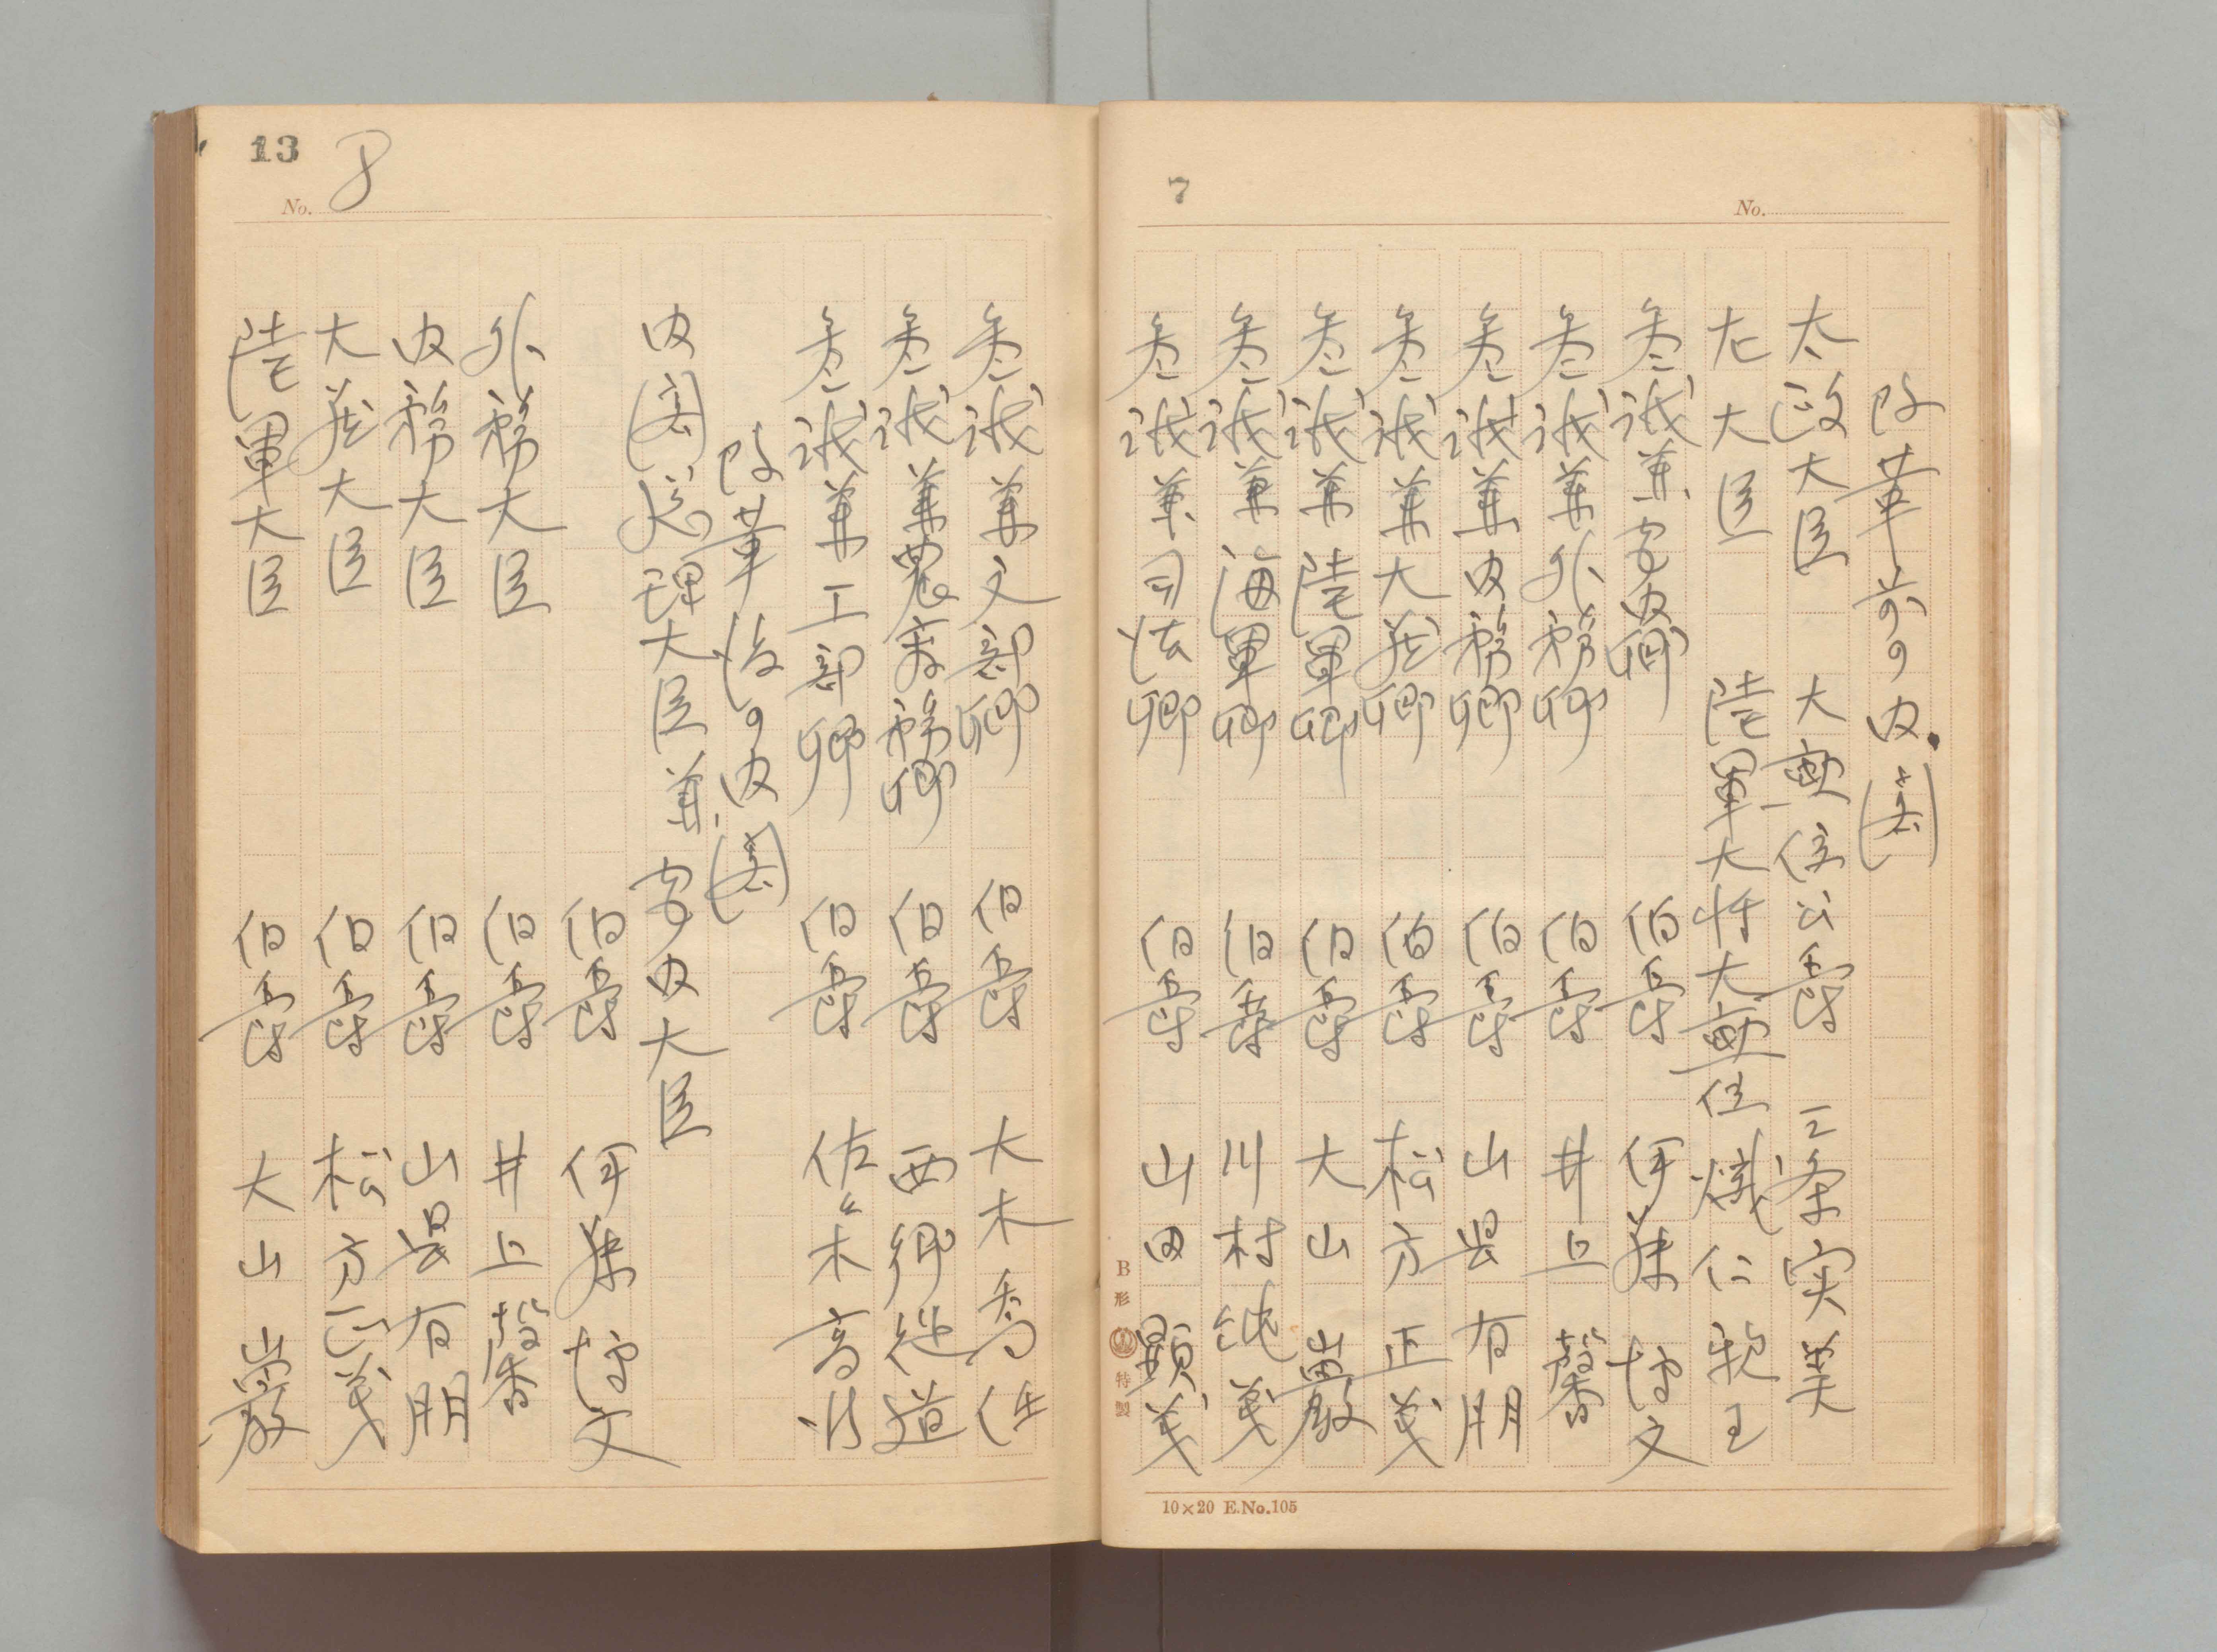 7
No.
改革前の内閣
太政大臣 大勲位公爵 三条実美
左大臣 陸軍大将大勲位 熾仁親王
参議兼宮内卿 伯爵 伊藤博文
参議兼外務卿 伯爵 井上馨
参議兼内務卿 伯爵 山県有朋
参議兼大蔵卿 伯爵 松方正義
参議兼陸軍卿 伯爵 大山巌
参議兼海軍卿 伯爵 川村純義
参議兼司法卿 伯爵 山田顕義
B形 特製
10×20 E.No.105
13
No. 8
参議兼文部卿 伯爵 大木喬任
参議兼農商務卿 伯爵 西郷従道
参議兼工部卿 伯爵 佐々木高行
改革後の内閣
内閣総理大臣兼宮内大臣
伯爵 伊藤博文
外務大臣 伯爵 井上馨
内務大臣 伯爵 山県有朋
大蔵大臣 伯爵 松方正義
陸軍大臣 伯爵 大山巌